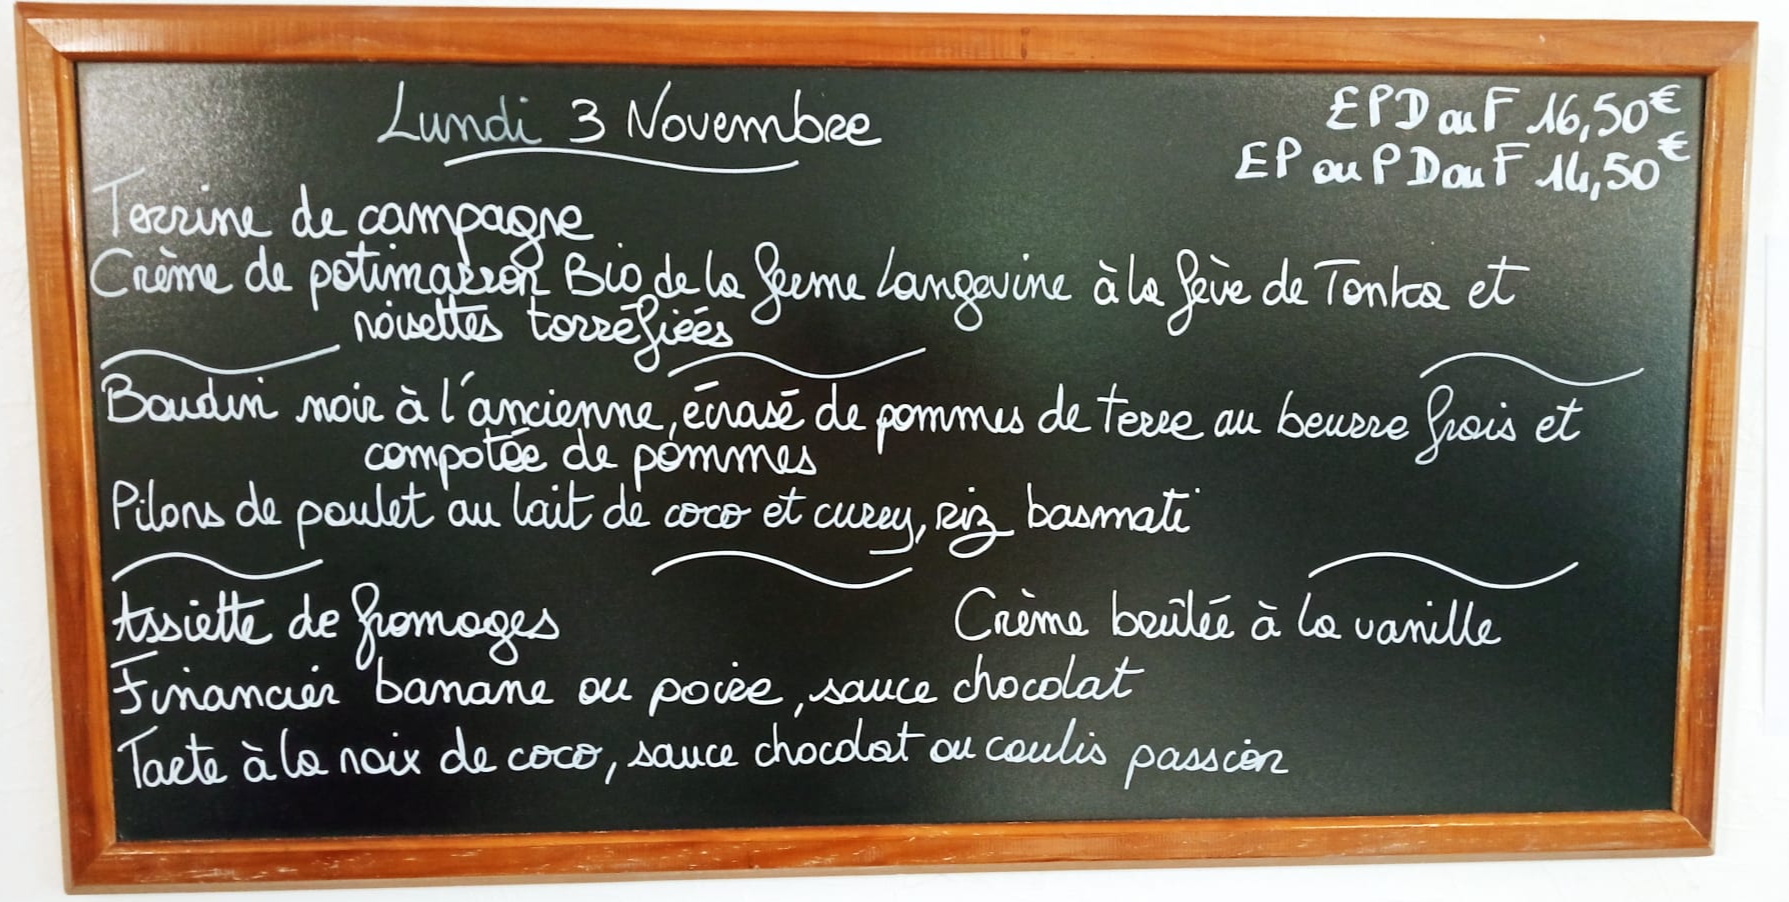 Lundi 3 Novembre
EPD ou F 16,50€
EP ou P D ou F 14,50€
Terrine de campagne
Crème de potimarron Bio de la ferme Langevine à la fève de Tonka et
noisettes torréfiées
Boudin noir à l'ancienne, écrasé de pommes de terre au beurre frais et
compotée de pommes
Pilons de poulet au lait de coco et curry, riz basmati
Assiette de fromages
Crème brûlée à la vanille
Financier banane ou poire, sauce chocolat
Tarte à la noix de coco, sauce chocolat ou coulis passion